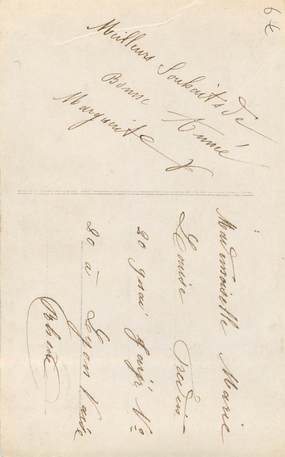 6 €
Meilleurs Souhaits de
Bonne Année
Marguerite
Mademoiselle Marie
Louise
20 quai
20 à Lyon Vaise
Rhône